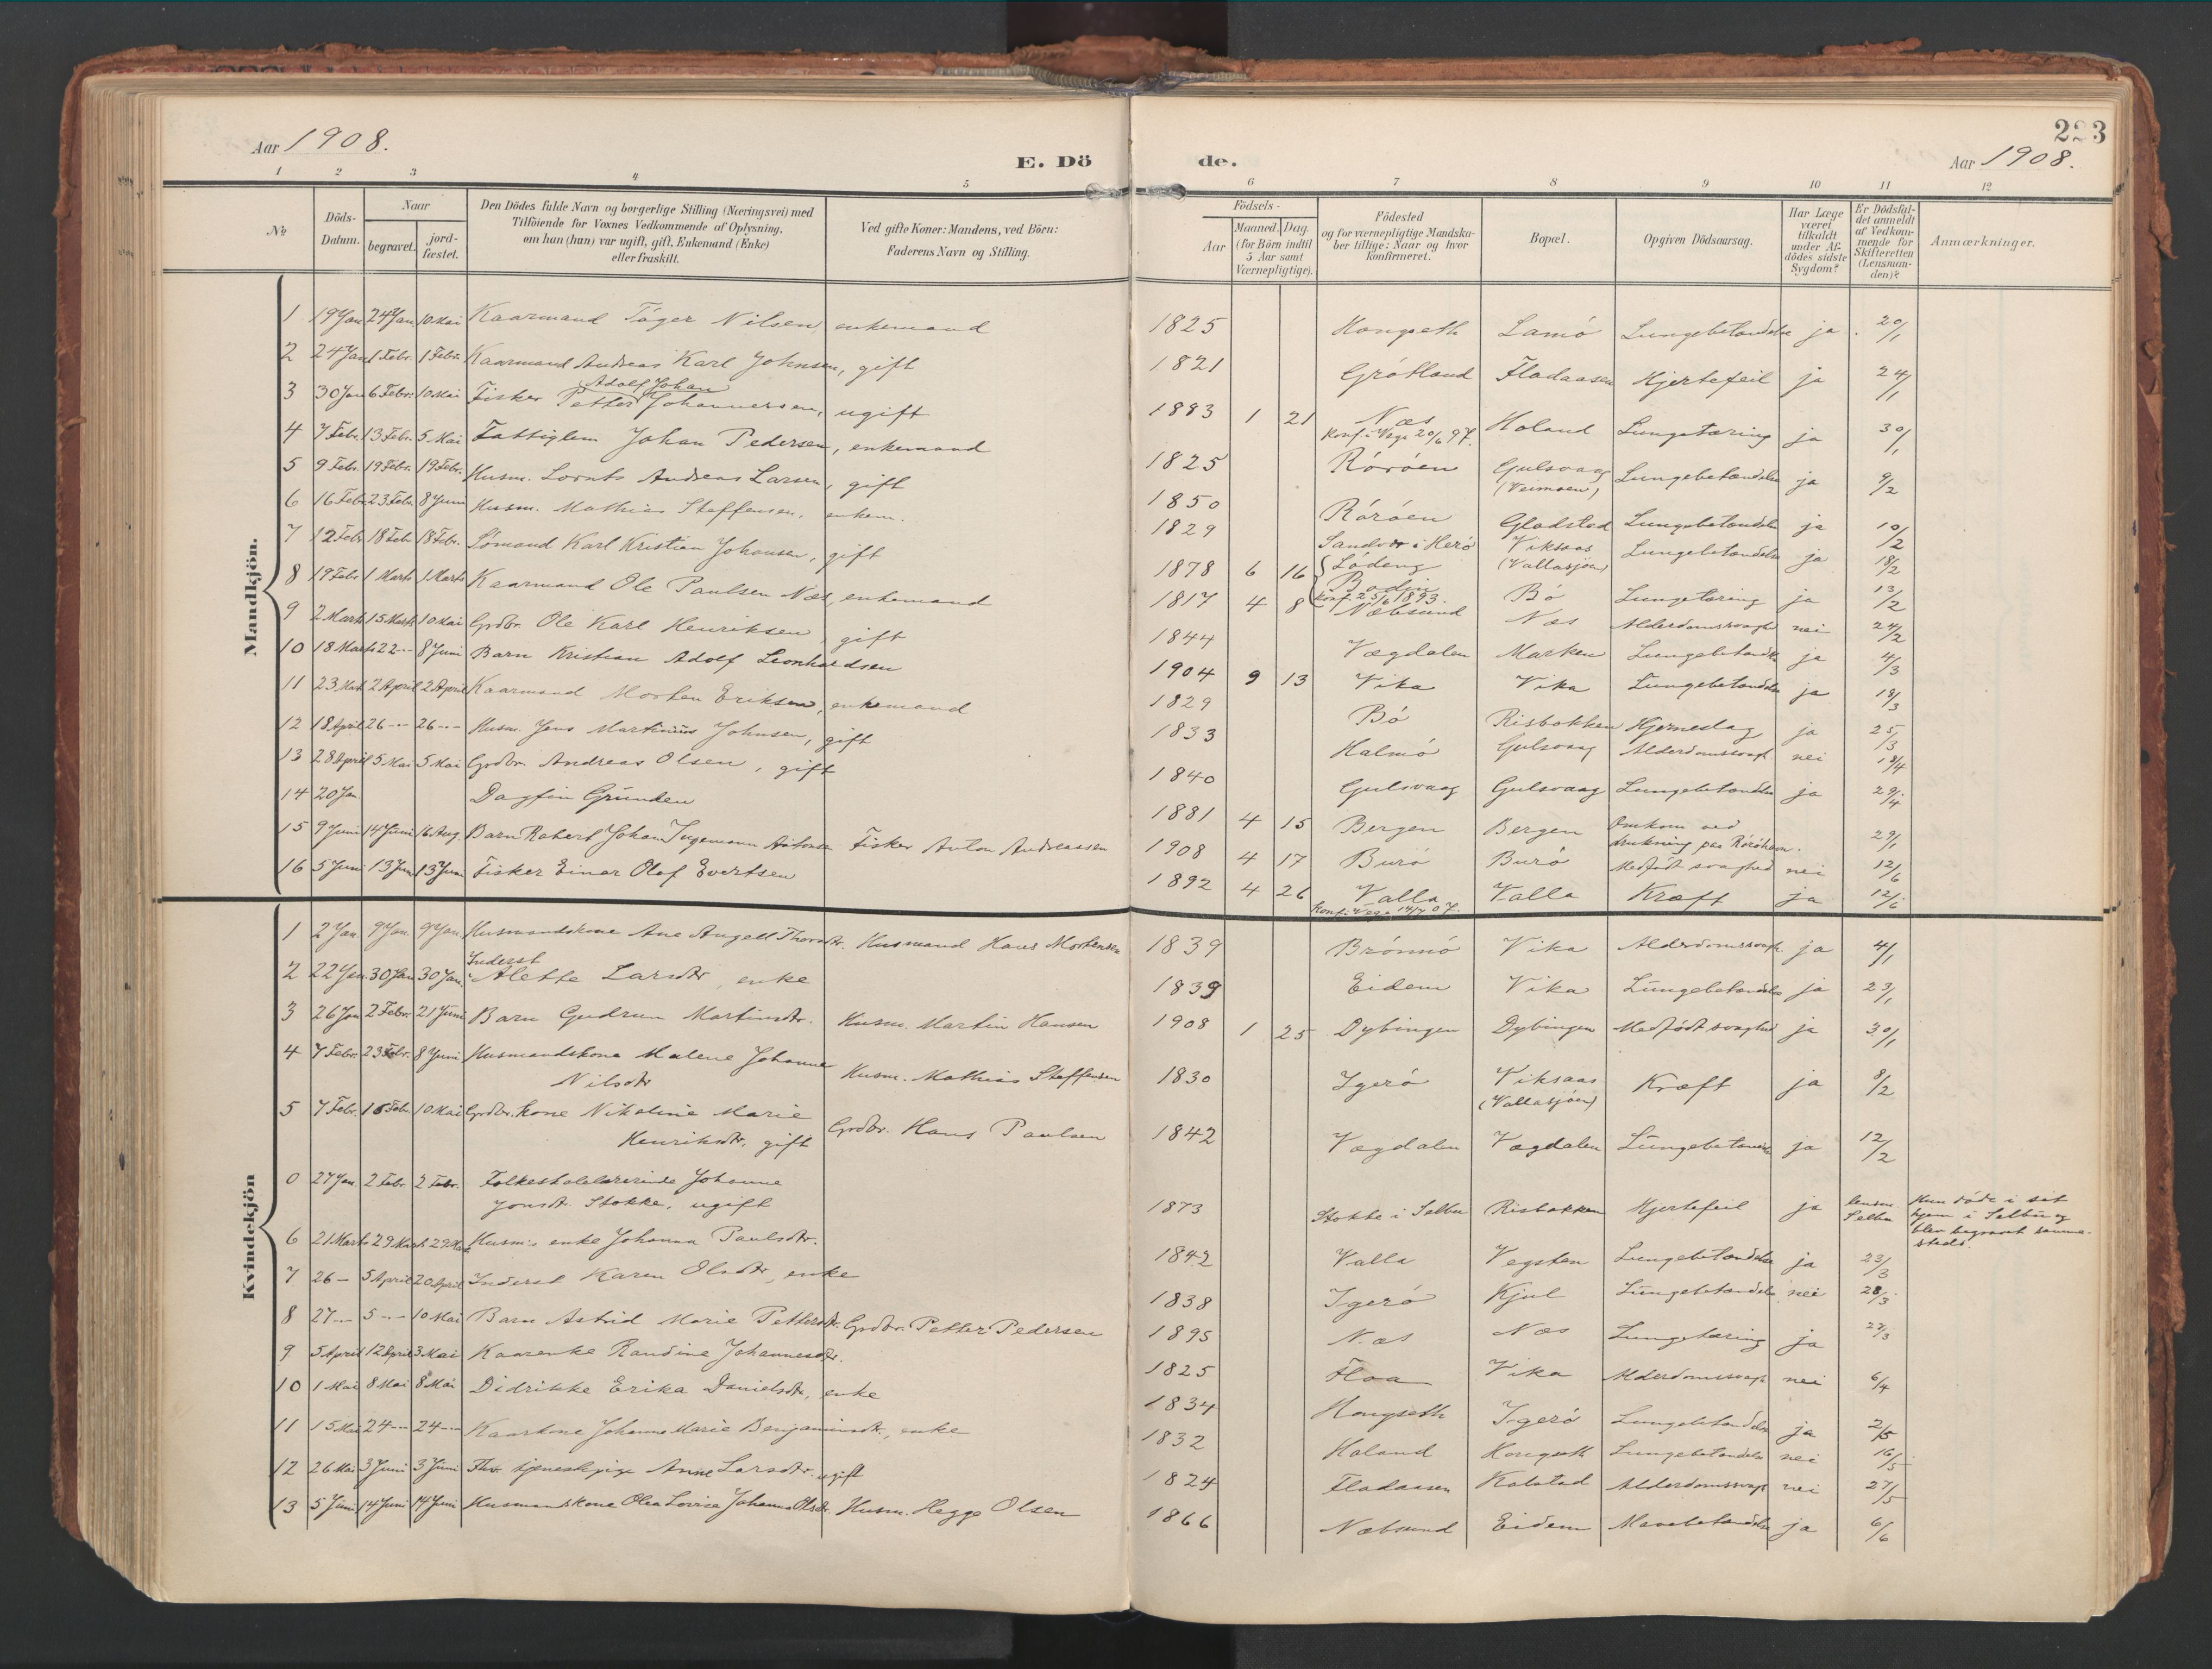 Aar 1908.
E. Döde.
223
Aar 1908.
1 2 3 4 5 6 7 8 9 10 11 12
No
Döds-Datum.
Naar
begravet.
jord-fæstet.
Den Dödes fulde Navn og borgerlige Stilling (Næringsvei) med
Tilföiende for Voxnes Vedkommende af Oplysning,
om han (hun) var ugift, gift, Enkemand (Enke)
eller fraskilt.
Ved gifte Koner: Mandens, ved Börn:
Faderens Navn og Stilling.
Födsels-
Aar
Maaned. Dag.
(for Börn indtil
5 Aar samt
Værnepligtige).
Födested
og for værnepligtige Mandska-
ber tillige: Naar og hvor
konfirmeret.
Bopæl.
Opgiven Dödsaarsag.
Har Læge
været
tilkaldt
under Af-
dödes sidste
Sygdom?
Er Dödsfal-
det anmeldt
af Vedkom-
mende for
Skifteretten
(Lensman-
den)?
Anmærkninger.
Mandkjön.
1 19 Jan 24 Jan 10 Mai Kaarmand Töger Nilsen, enkemand 1825 Hongseth Lamö Lungebetændelse ja 20/1
2 24 Jan 1 Febr. 1 Febr. Kaarmand Andreas Karl Johnsen, gift 1821 Grötland Fladaasen Hjertefeil ja 24/1
Adolf Johan
3 30 Jan 6 Febr. 10 Mai Fisker Petter Johannersen, ugift 1883 1 21 Næs Holand Lungetæring ja 30/1
Konf. i Vega 20/6 97.
4 7 Febr. 13 Febr. 5 Mai Fattiglem Johan Pedersen, enkemand 1825 Röröen Gulsvaag Lungebetændelse ja 9/2
(Veimoen)
5 9 Febr. 19 Febr. 19 Febr. Husm. Lornts Andreas Larsen, gift 1850 Röröen Gladstad Lungebetændelse ja 10/2
6 16 Febr. 23 Febr. 8 Juni Husm. Mathias Steffensen, enkem. 1829 Sandvær i Herö Viksaas Lungebetændelse ja 18/2
(Vallasjöen)
7 12 Febr 18 Febr 18 Febr. Sömand Karl Kristian Johansen, gift 1878 6 16 Lödeng Bö Lungetæring ja 13/2
Bodin
Konf. 25/6 1893.
8 19 Febr 1 Marts 1 Marts Kaarmand Ole Paulsen Næs, enkemand 1817 4 8 Næbsund Næs Alderdomssvagh nei 24/2
9 2 Marts 15 Marts 10 Mai Grdbr. Ole Karl Henriksen, gift 1844 Vægdalen Marken Lungebetændelse ja 4/3
10 18 Marts 22 -- 8 Juni Barn Kristian Adolf Leonhardsen 1904 9 13 Vika Vika Lungebetændelse ja 18/3
11 23 Mart 2 April 2 April Kaarmand Morten Eriksen, enkemand 1829 Bö Risbakken Hjerneslag ja 25/3
12 18 April 26 -- 26 -- Husm. Jens Martinius Johnsen, gift 1833 Halmö Gulsvaag Alderdomssvagh nei 18/4
13 28 April 5 Mai 5 Mai Grdbr. Andreas Olsen, gift 1840 Gulsvaag Gulsvaag Lungebetændelse ja 29/4
14 20 Jan. Dagfin Grunden 1881 4 15 Bergen Bergen Omkom ved 29/1
drukning paa
15 9 Juni 14 Juni 16 Aug. Barn Robert Johan Ingemann Antonsen Fisker Anton Andreassen 1908 4 17 Burö Burö Medfödt svaghed nei 12/6
16 5 Juni 13 Jun 13 Juni Fisker Einar Olaf Evertsen 1892 4 26 Valla Valla Kræft ja 12/6
Konf. i Vega 14/7 07.
Kvindekjön
1 2 Jan 9 Jan. 9 Jan. Husmandskone Ane Angell Thorsdtr. Husmand Hans Mortensen 1839 Brönnö Vika Alderdomssvagh. ja 4/1
Inderst
2 22 Jan 30 Jan 30 Jan. Alette Larsdtr, enke 1839 Eidem Vika Lungebetændelse ja 23/1
3 26 Jan 2 Febr. 21 Juni Barn Gudrun Martinsdtr. Husm. Martin Hansen 1908 1 25 Dybingen Dybingen Medfödt svaghed ja 30/1
4 7 Febr. 23 Febr. 8 Juni Husmandskone Malene Johanne Husm. Mathias Steffensen 1830 Igerö Viksaas Kræft ja 8/2
Nilsdtr (Vallasjöen)
5 7 Febr. 16 Febr. 10 Mai Grdbr. kone Nikoline Marie Grdbr. Hans Paulsen 1842 Vægdalen Vægdalen Lungebetændelse ja 12/2
Henriksdtr. gift
0 27 Jan 2 Febr 2 Febr. Folkeskolelærerinde Johanne
Jonsdt. Stokke, ugift 1873 Stokke i Selbu Risbakken Hjertefeil ja lensm Selbu
Hun döde i sit
hjem i Selbu og
blev begravet samme-
steds.
6 21 Marts 29 Mart 29 Mart Husm:s enke Johanna Paulsdtr. 1842 Valla Vegsten Lungebetændelse ja 23/3
7 26 - 5 April 20 April Inderst Karen Olsdtr, enke 1838 Igerö Kjul Lungebetændelse nei 28/3
8 27 -- 5 -- 10 Mai Barn Astrid Marie Pettersdtr. Grdbr. Petter Pedersen 1895 Næs Næs Lungetæring ja 27/3
9 5 April 12 April 3 Mai Kaarenke Randine Johannesdtr. 1825 Floa Vika Alderdomssvagh nei 6/4
10 1 Mai 8 Mai 8 Mai Didrikke Erika Danielsdtr, enke 1834 Hongseth Igerö Lungebetændelse ja 2/5
11 15 Mai 24 -- 24 -- Kaarkone Johanne Marie Benjaminsdtr, enke 1832 Holand Hongseth Lungebetændelse nei 16/5
12 26 Mai 3 Juni 3 Juni Fhv. tjenestepige Anne Larsdtr. ugift 1824 Fladaasen Kalstad Alderdomssvagh nei 27/5
13 5 Juni 14 Juni 14 Juni Husmandskone Olea Lovise Johanna Olsdtr. Husm. Hegge Olsen 1866 Næbsund Eidem Mavebetændelse ja 6/6